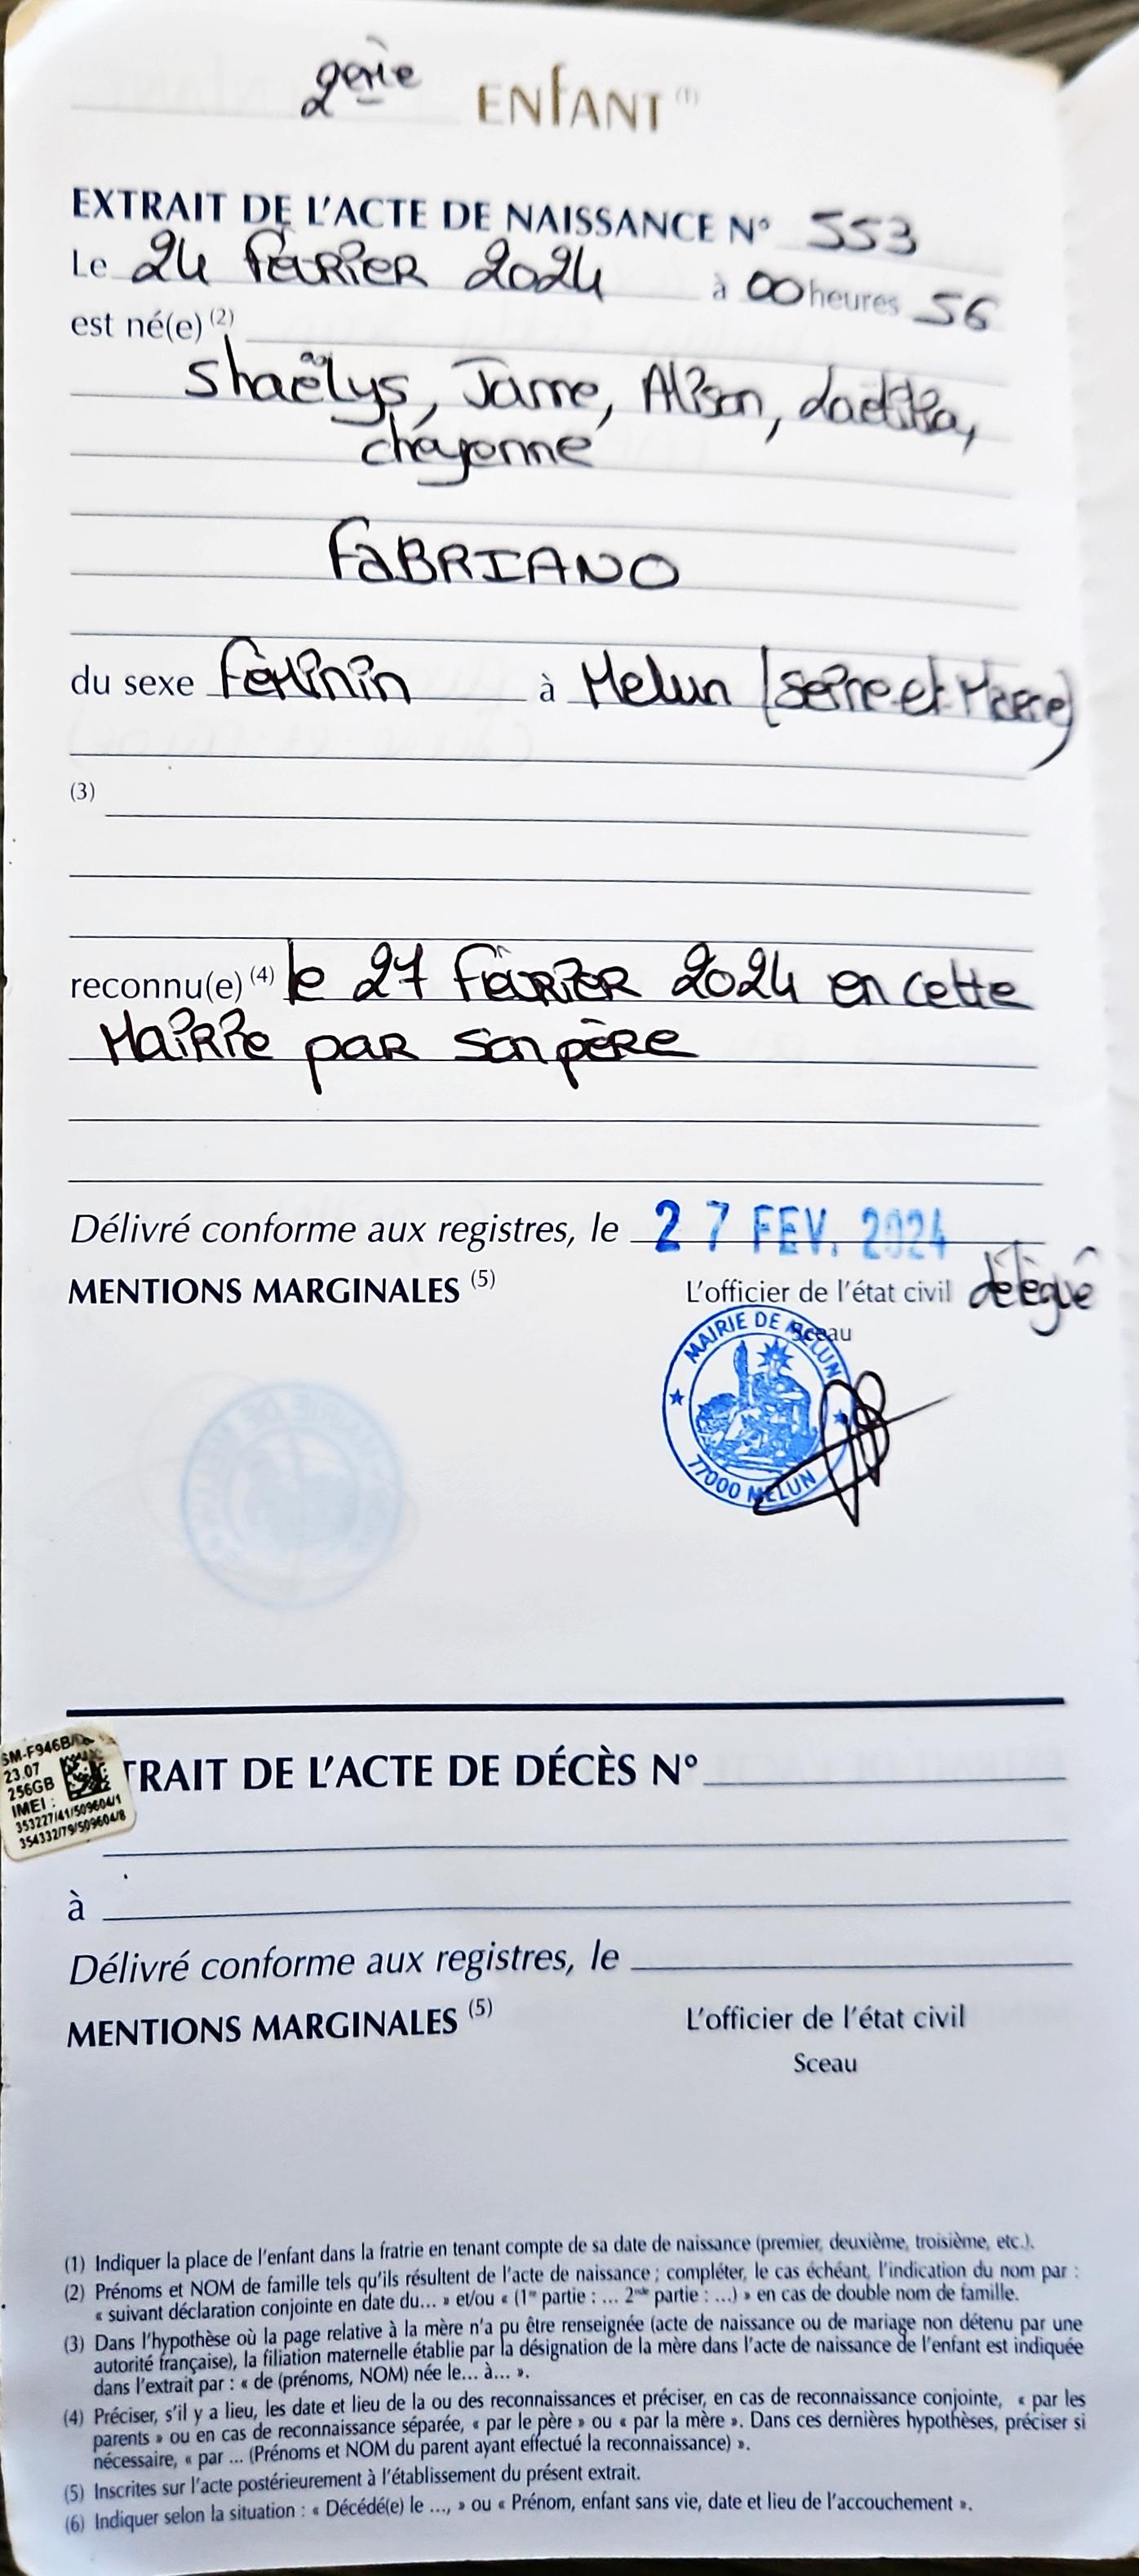 2ème ENFANT (1)
EXTRAIT DE L'ACTE DE NAISSANCE N° 553
Le 24 février 2024 à 00 heures 56
est né(e) (2)
Shaëlys, Jame, Alison, Laetitia,
chéyenne
FABRIANO
du sexe Féminin à Melun (Seine et Marne)
(3)
reconnu(e) (4) le 27 Février 2024 en cette
Mairie par son père
Délivré conforme aux registres, le 27 FEV. 2024
MENTIONS MARGINALES (5) L'officier de l'état civil délégué
Sceau
MAIRIE DE MELUN
77000 MELUN
SM-F946B/
23.07
256GB
IMEI :
353227/41/509604/1
354332/79/509604/8
TRAIT DE L'ACTE DE DÉCÈS N°
à
Délivré conforme aux registres, le
MENTIONS MARGINALES (5) L'officier de l'état civil
Sceau
(1) Indiquer la place de l'enfant dans la fratrie en tenant compte de sa date de naissance (premier, deuxième, troisième, etc.).
(2) Prénoms et NOM de famille tels qu'ils résultent de l'acte de naissance ; compléter, le cas échéant, l'indication du nom par :
« suivant déclaration conjointe en date du... » et/ou « (1re partie : ... 2nde partie : ...) » en cas de double nom de famille.
(3) Dans l'hypothèse où la page relative à la mère n'a pu être renseignée (acte de naissance ou de mariage non détenu par une
autorité française), la filiation maternelle établie par la désignation de la mère dans l'acte de naissance de l'enfant est indiquée
dans l'extrait par : « de (prénoms, NOM) née le... à... ».
(4) Préciser, s'il y a lieu, les date et lieu de la ou des reconnaissances et préciser, en cas de reconnaissance conjointe, « par les
parents » ou en cas de reconnaissance séparée, « par le père » ou « par la mère ». Dans ces dernières hypothèses, préciser si
nécessaire, « par ... (Prénoms et NOM du parent ayant effectué la reconnaissance) ».
(5) Inscrites sur l'acte postérieurement à l'établissement du présent extrait.
(6) Indiquer selon la situation : « Décédé(e) le ..., » ou « Prénom, enfant sans vie, date et lieu de l'accouchement ».